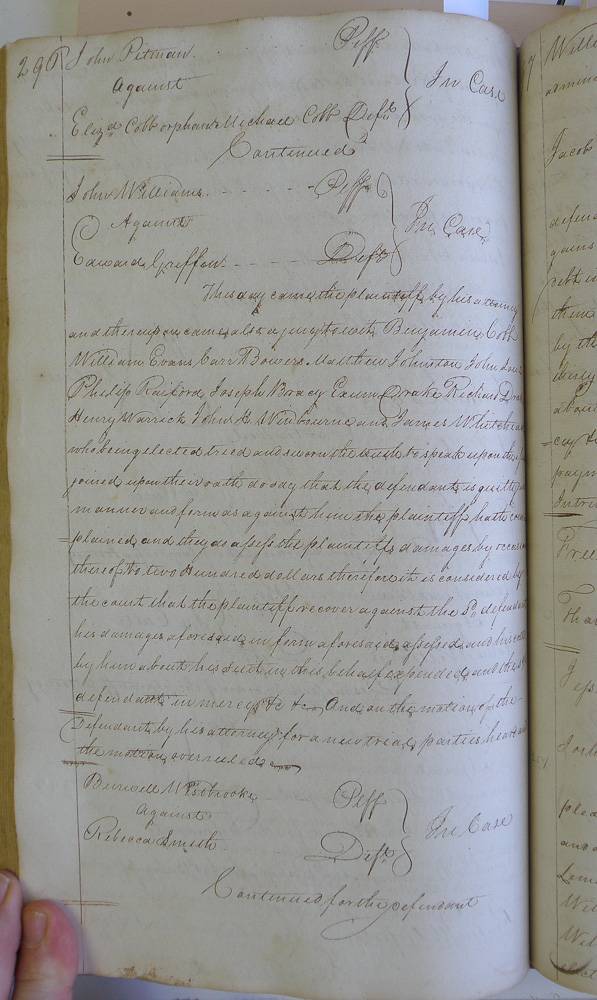 296 John Pitman. Plff
Against
In Case
Eliza Cobb orphan Michael Cobb Deft
Continued
John Williams. Plff
Against
In Case
Edward Griffin. Deft
This day came the plaintiff by his attorney
and thereupon came also a jury to wit, Benjamin Cobb
William Evans, Carr Bowers, Matthew Johnston, John
Philip Raiford, Joseph Brady, Exum Drake, Richard
Henry Warrick, John H. Winbourne and James Whitehead
who being elected tried and sworn the truth to speak upon the
joined upon their oath do say that the defendant, is guilty in
manner and form as against him the plaintiff hath com
plained, and they do assess the plaintiff, damages by occasion
thereof, to two Hundred dollars therefore it is considered by
the court that the plaintiff recover against the sd. defendant
his damages aforesaid, in form aforesaid, assessed, and his costs
by him about his suit in this behalf expended, and the sd
defendant in mercy &c &c And on the motion of the
Defendant, by his attorney for a new treal, parties heard and
the motion, overruled.
Burwell Westbrooke Plff
Against
In Case
Rebecca Smith Deft
Continued for the defendant
7 Willi
Jacob
defend
gains
debt
them
by the
about
cay &
paym
Intre
Free
Tha
pled
and
Wil
Wil